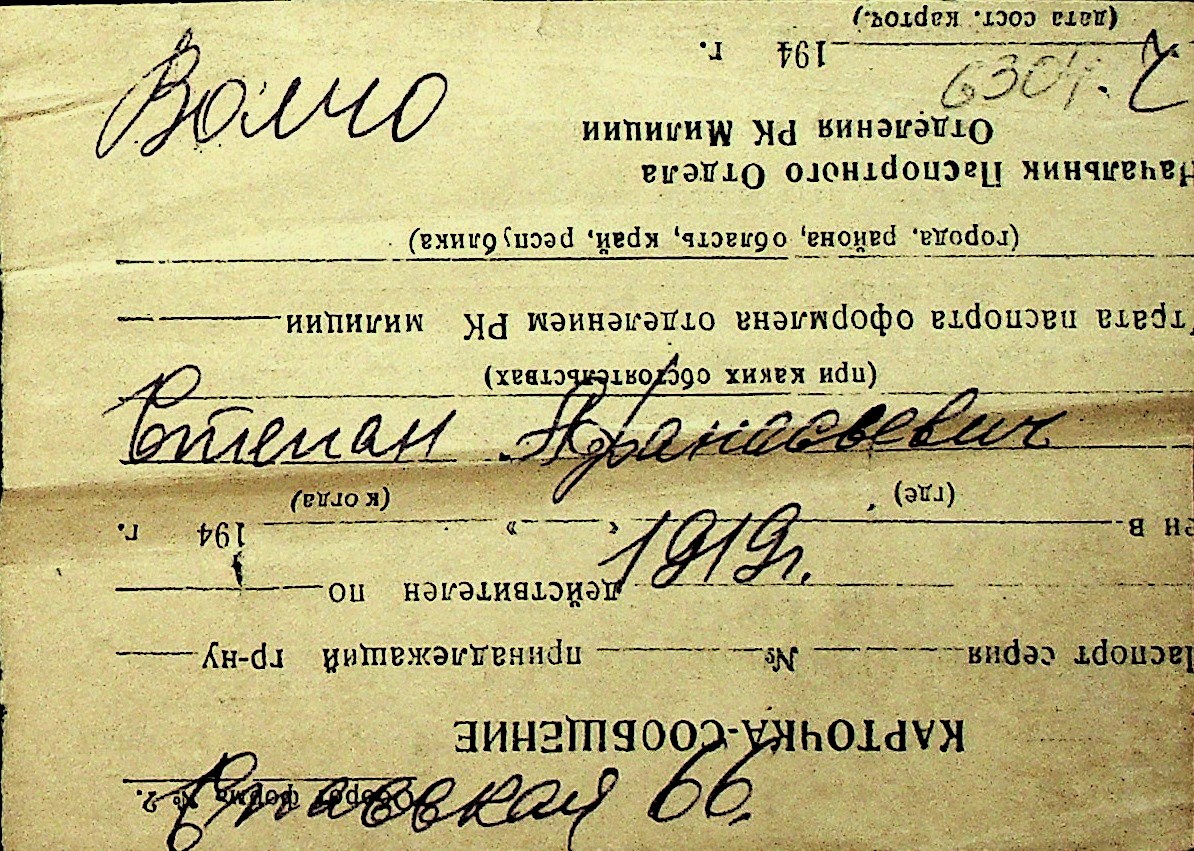 Волчо
Степан Афанасьевич
1919г.
Спасская 66.
Оборот формы № 2.
КАРТОЧКА-СООБЩЕНИЕ
Паспорт серия № принадлежащий гр-ну
действителен по 194 г.
в « » 194 г.
(где) (когда)
(при каких обстоятельствах)
Утрата паспорта оформлена отделением РК милиции
(города, района, область, край, республика)
Начальник Паспортного Отдела
Отделения РК Милиции
194 г.
(дата сост. карточ.)